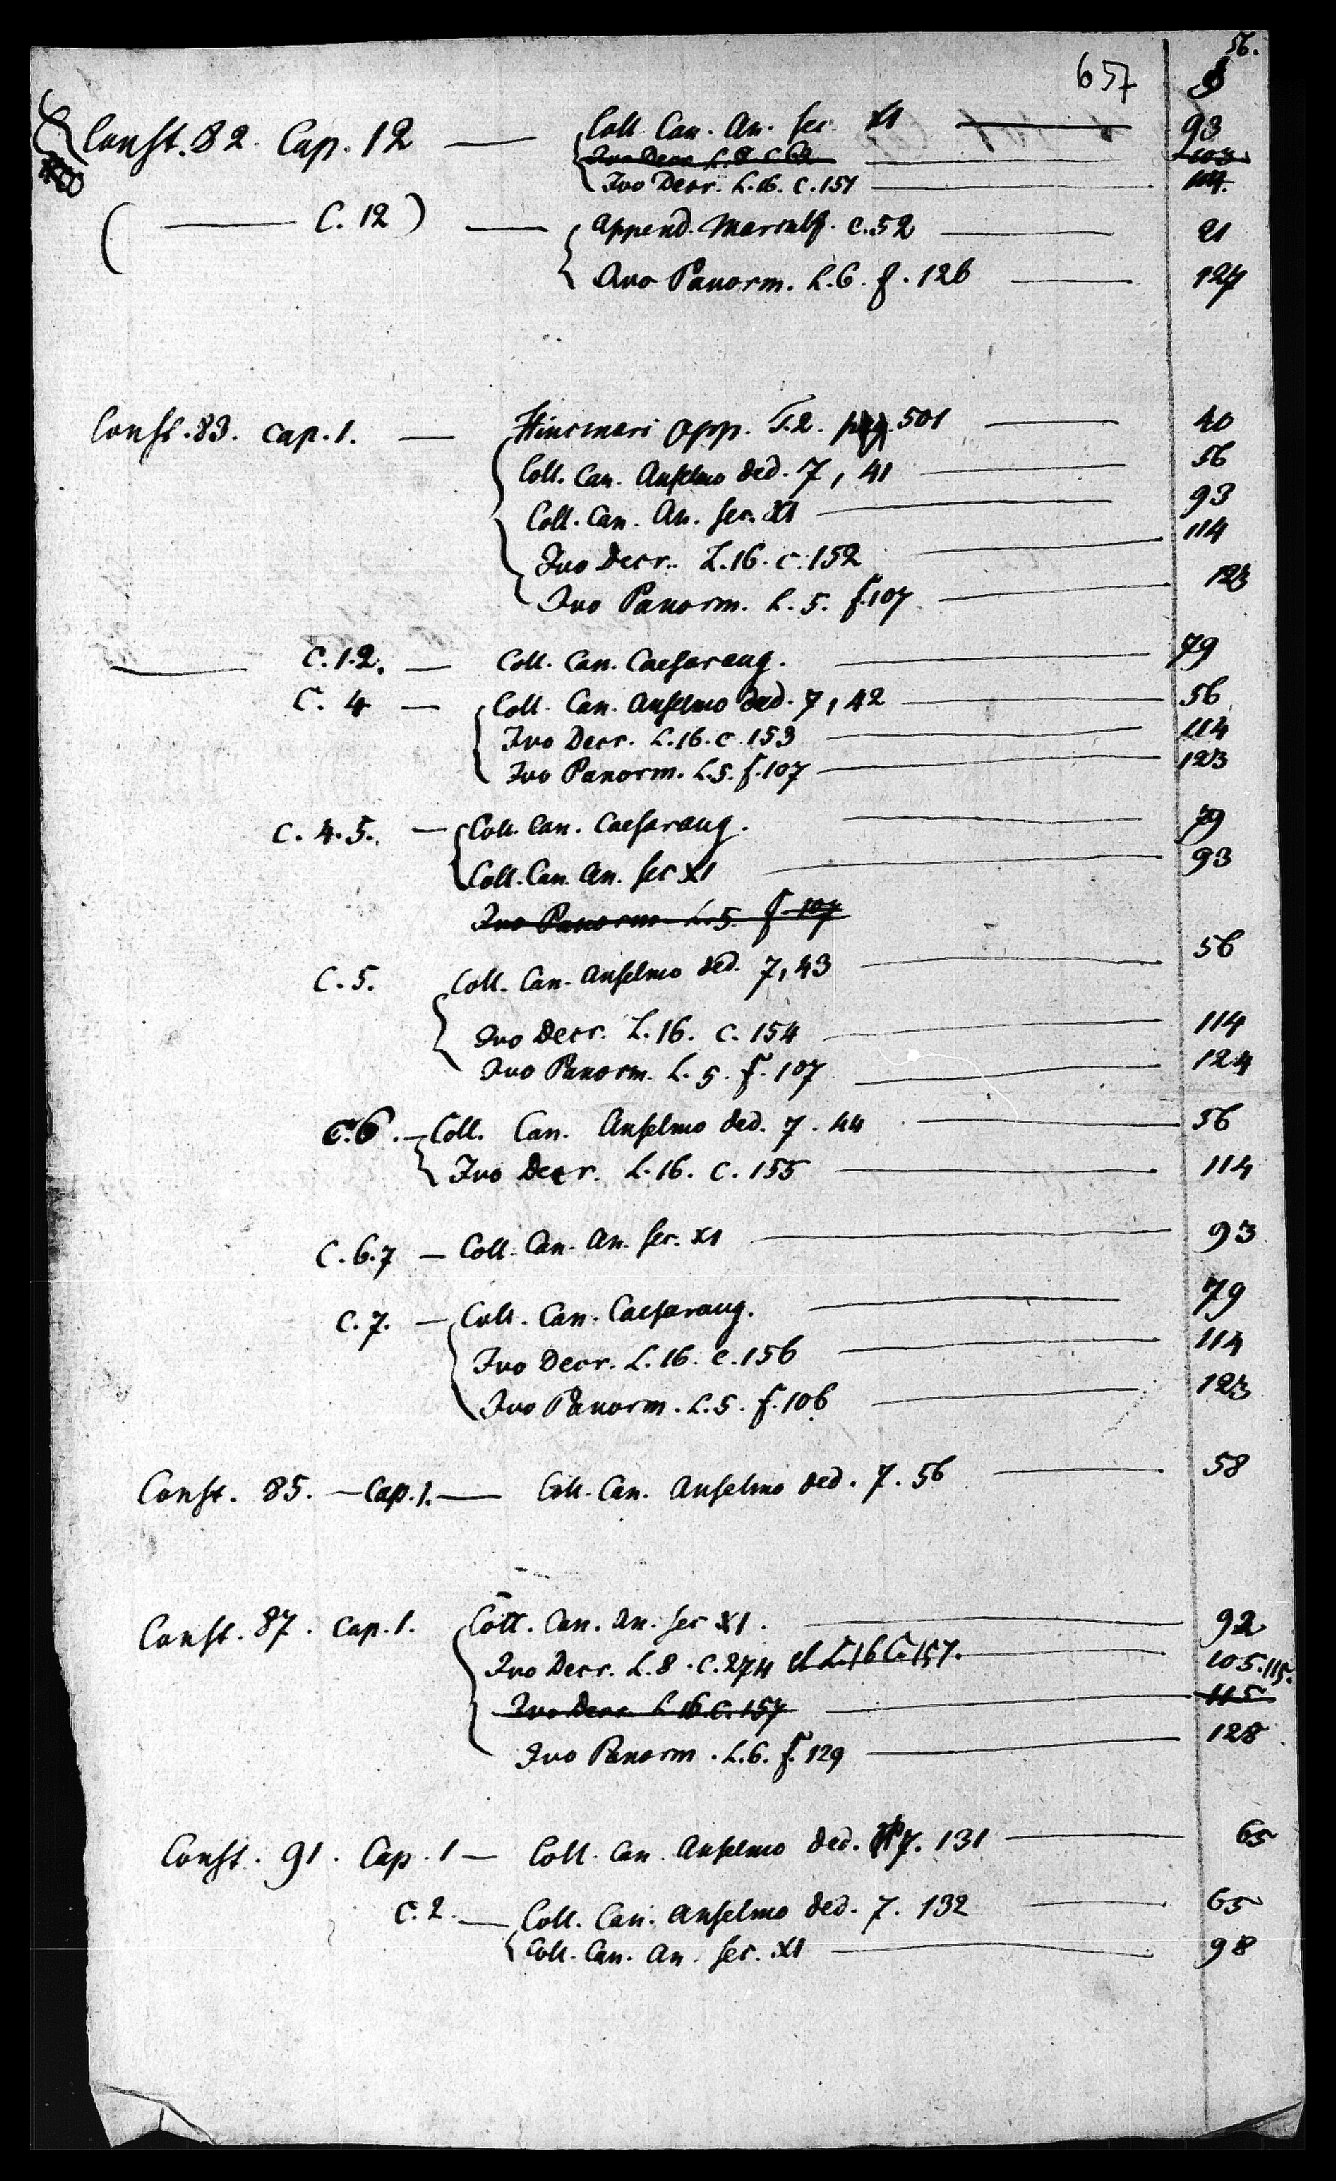 56.
657
Const. 82. Cap. 12 — Coll. Can. An. sec. XI — 93
Ivo Decr. L. 8 c. — 103
Ivo Decr. L. 16. c. 151 — 114.
( — C. 12 ) — Append. Marculf. c. 52 — 21
Ivo Panorm. L. 6. f. 126 — 127
Const. 83. cap. 1. — Hincmari opp. T. 2. pag. 501 — 40
Coll. Can. Anselmo ded. 7, 41 — 56
Coll. Can. An. sec. XI — 93
Ivo Decr. L. 16. c. 152 — 114
Ivo Panorm. L. 5. f. 107. — 123
— C. 1. 2. — Coll. Can. Caesaraug. — 79
C. 4 — Coll. Can. Anselmo ded. 7, 42 — 56
Ivo Decr. L. 16. c. 153 — 114
Ivo Panorm. L. 5. f. 107 — 123
C. 4. 5. — Coll. Can. Caesaraug. — 79
Coll. Can. An. sec XI — 93
Ivo Panorm. L. 5. f. 107
C. 5. Coll. Can. Anselmo ded. 7, 43 — 56
Ivo Decr. L. 16. c. 154 — 114
Ivo Panorm. L. 5. f. 107 — 124
C. 6. — Coll. Can. Anselmo ded. 7. 44 — 56
Ivo Decr. L. 16. c. 155 — 114
C. 6. 7 — Coll. Can. An. sec. XI — 93
C. 7. — Coll. Can. Caesaraug. — 79
Ivo Decr. L. 16. c. 156 — 114
Ivo Panorm. L. 5. f. 106 — 123
Const. 85. — Cap. 1. — Coll. Can. Anselmo ded. 7. 56 — 58
Const. 87. cap. 1. Coll. Can. An. sec XI. — 92
Ivo Decr. L. 8. c. 274 et L. 16 C. 157. — 105. 115.
Ivo Decr. L. 16. c. 157 — 115
Ivo Panorm. L. 6. f. 129 — 128
Const. 91. Cap. 1 — Coll. Can. Anselmo ded. 7. 131 — 65
C. 2. — Coll. Can. Anselmo ded. 7. 132 — 65
Coll. Can. An. sec. XI — 98